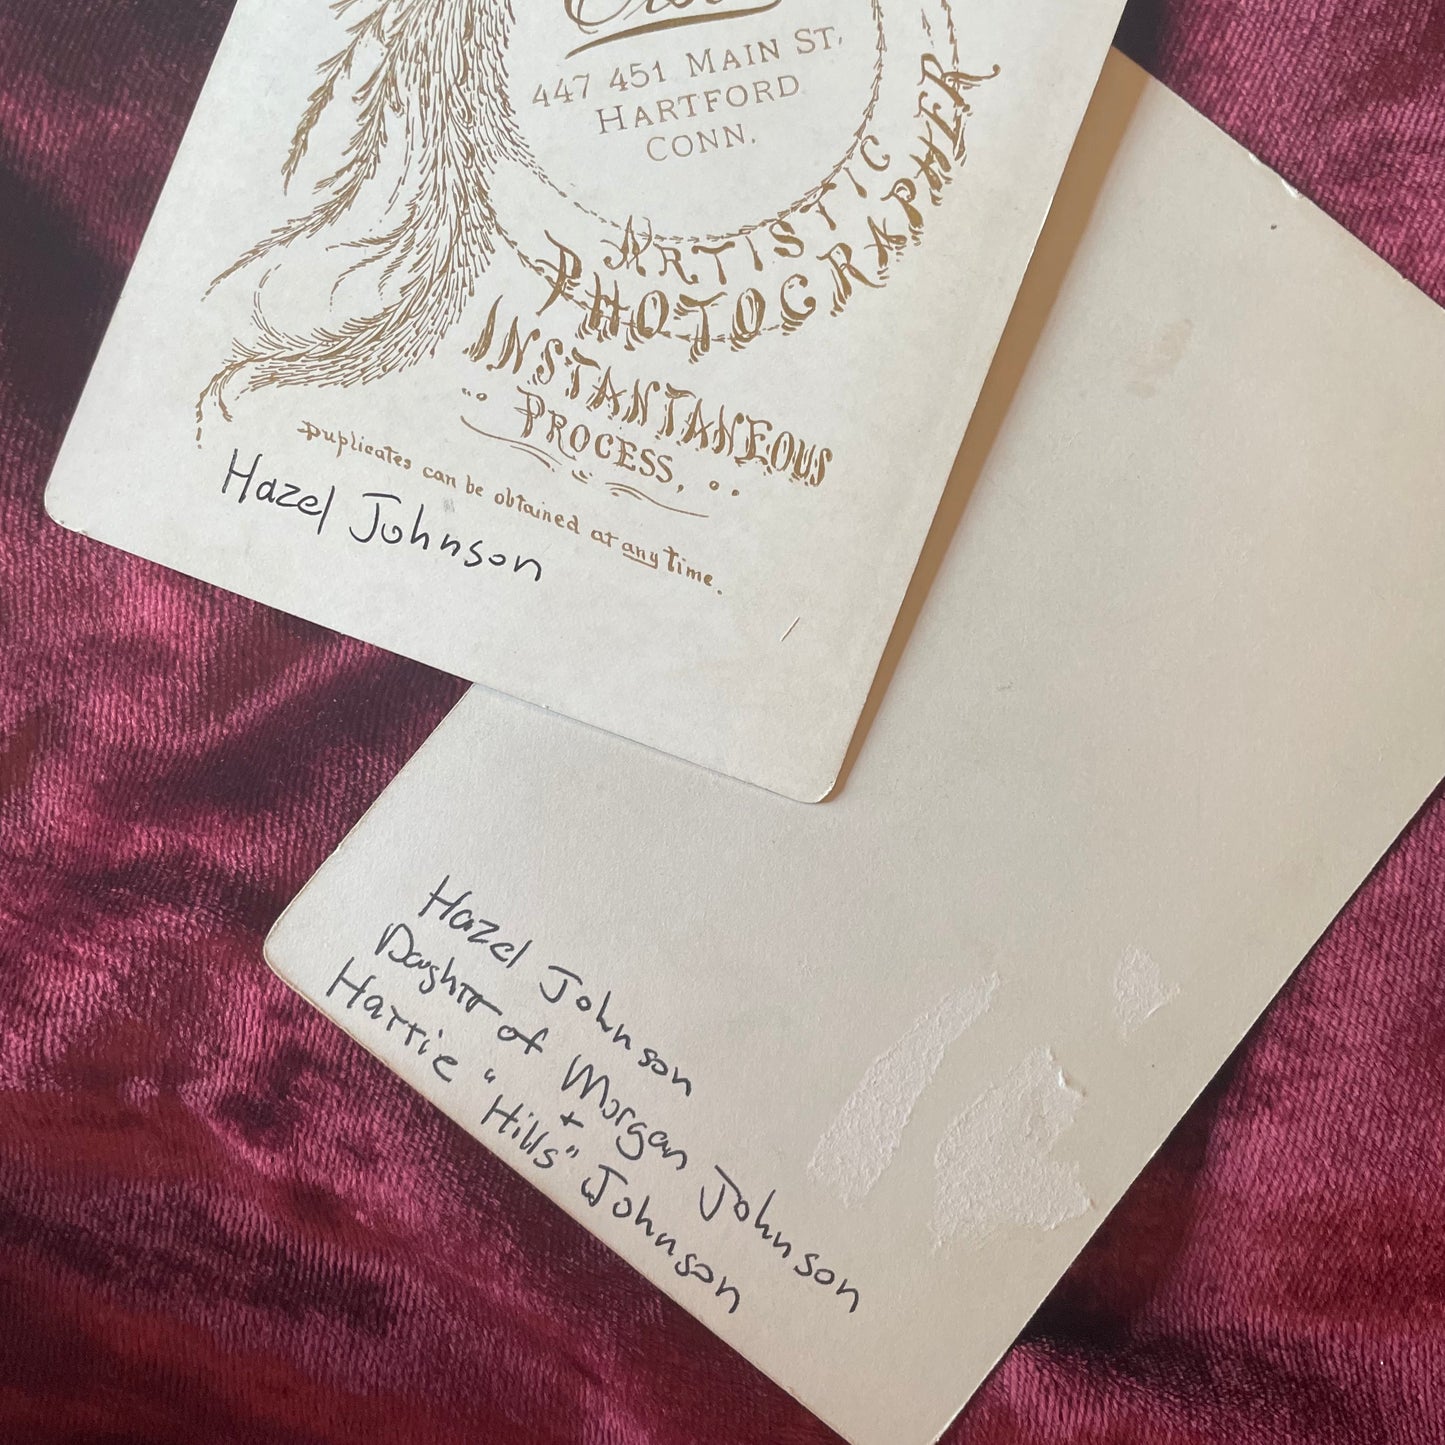 447 451 MAIN ST,
HARTFORD
CONN.
ARTISTIC
PHOTOGRAPHER
INSTANTANEOUS
PROCESS,
Duplicates can be obtained at any time.
Hazel Johnson
Hazel Johnson
Daughtr of Morgan Johnson
+
Harrie "Hills" Johnson